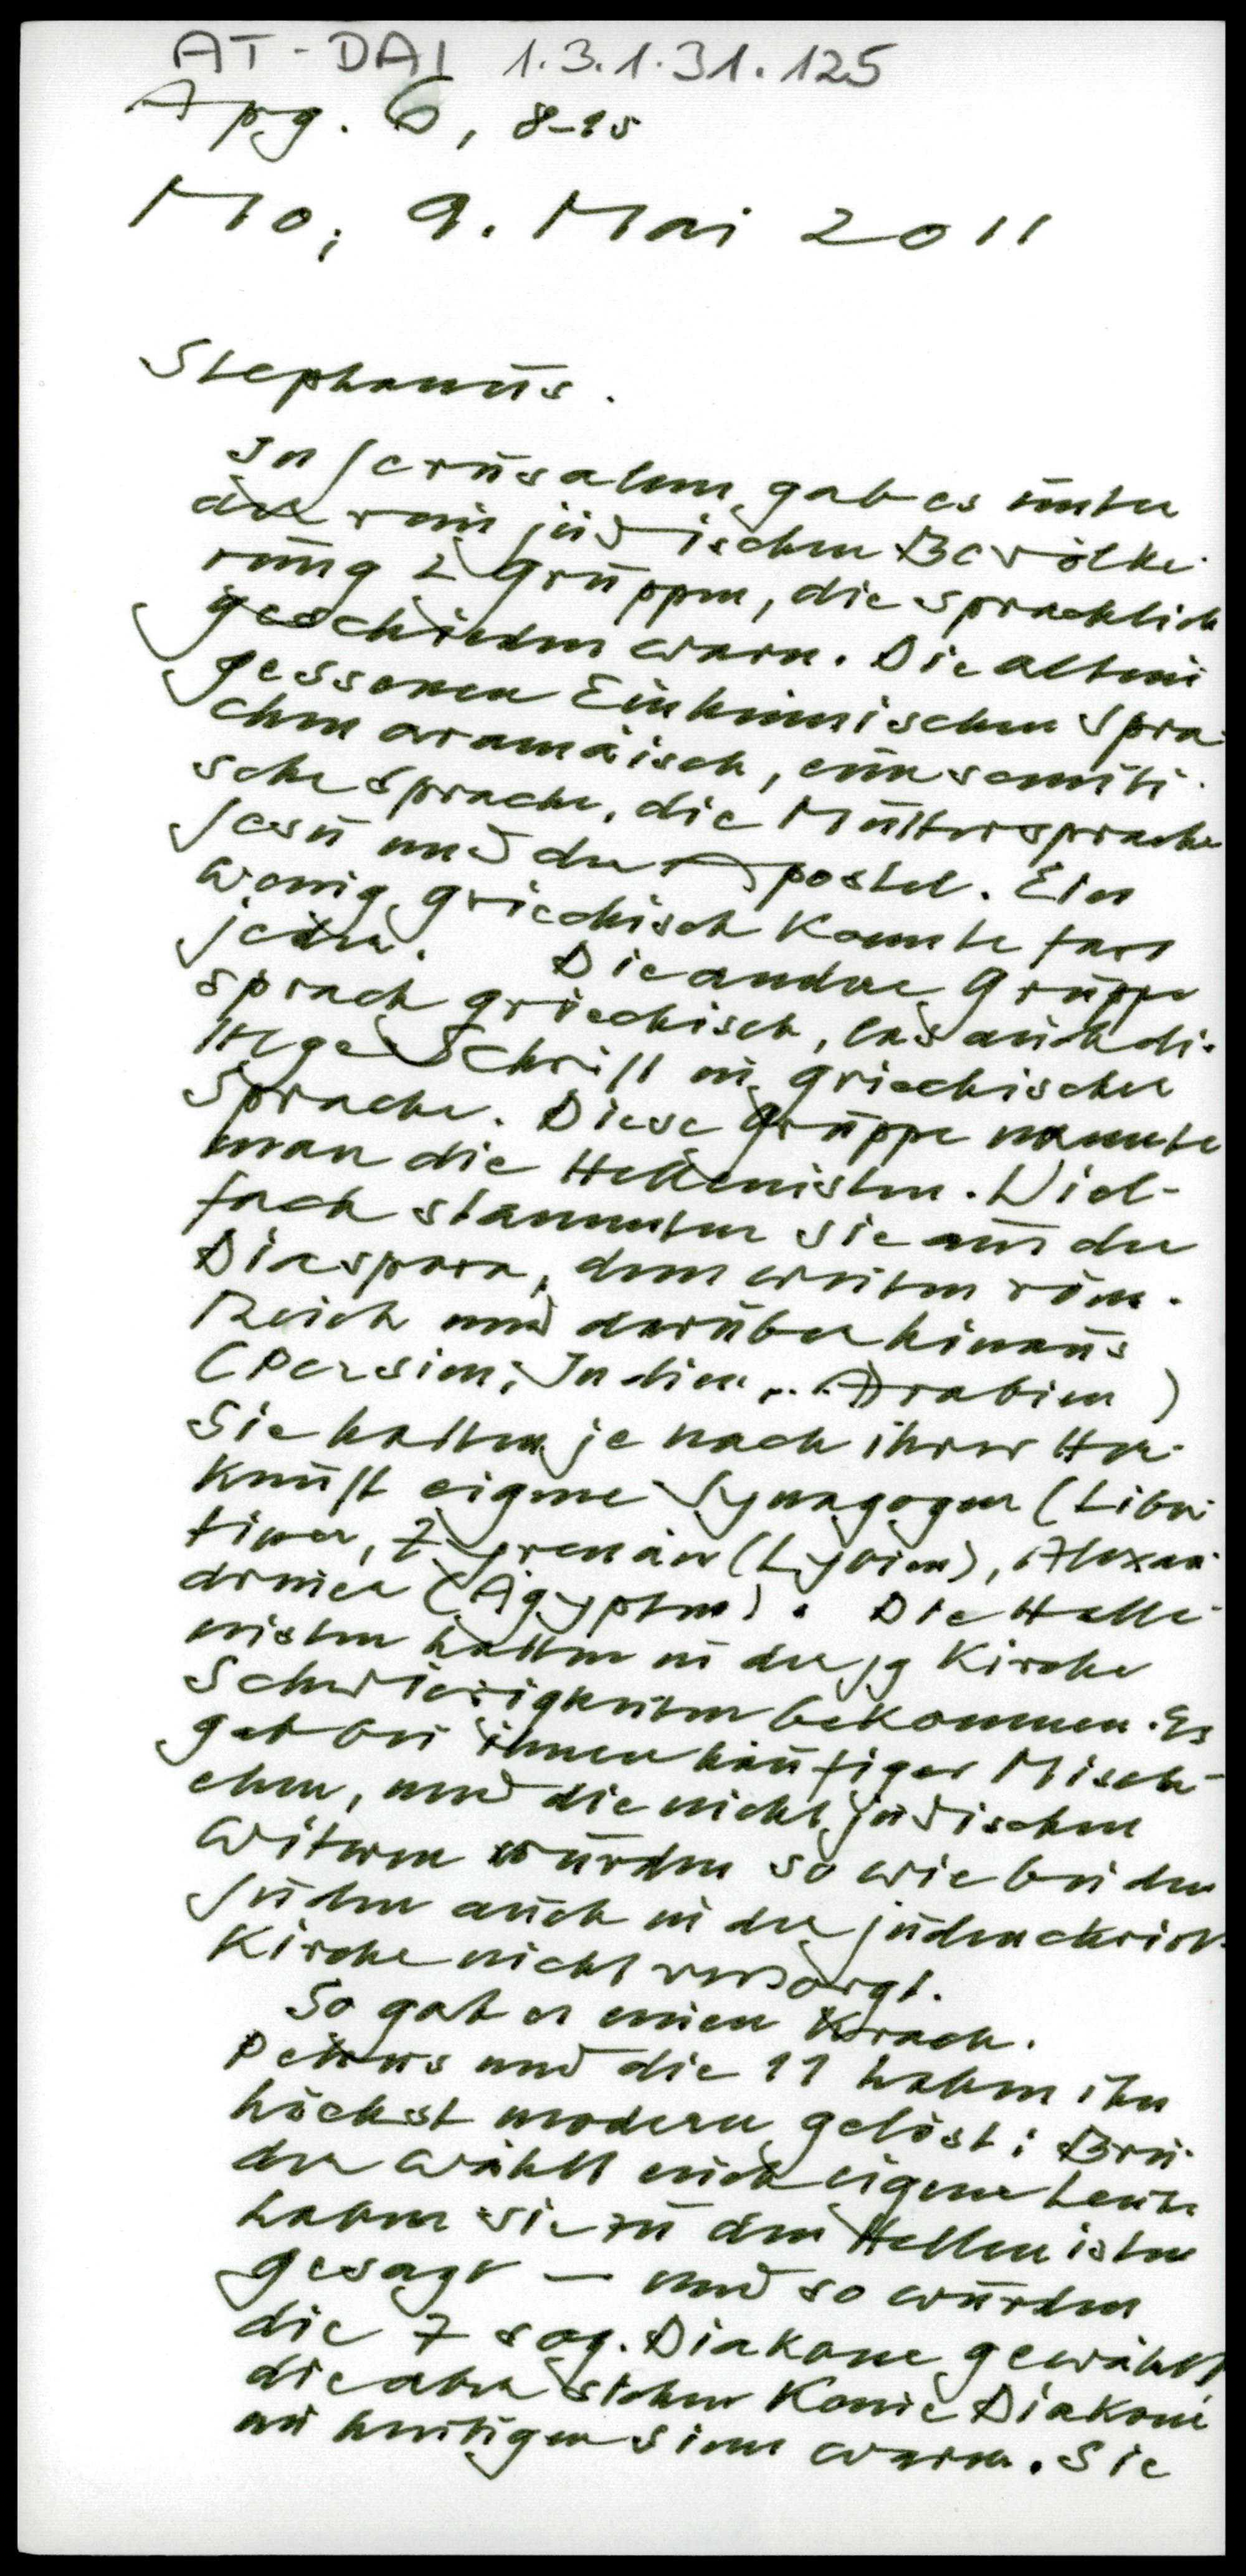 AT-DAI 1.3.1.31.125
Apg. 6, 8-15
Mo, 9. Mai 2011
Stephanus.
In Jerusalem gab es unter
der rein jüdischen Bevölke-
rung 2 Gruppen, die sprachlich
geschieden waren. Die altein
gessenen Einheimischen spra-
chen aramäisch, eine semiti-
sche Sprache, die Muttersprache
Jesu und der Apostel. Ein
wenig griechisch konnte fast
jeder. Die andere Gruppe
sprach griechisch, las auch die
Hlge Schrift in griechischer
Sprache. Diese Gruppe nannte
man die Hellenisten. Viel-
fach stammten sie aus der
Diaspora, dem weiten röm.
Reich und darüber hinaus
(Persien, Indien, .. Arabien)
Sie hatten je nach ihrer Her-
kunft eigene Synagogen (Liber-
tiner, Zyrenäer (Lybien), Alexan-
driner (Ägypten). Die Helle-
nisten hatten in der jg Kirche
Schwierigkeiten bekommen. Es
gab bei ihnen häufiger Misch-
ehen, und die nicht jüdischen
Witwen wurden so wie bei den
Juden auch in der judenchristl.
Kirche nicht versorgt.
So gab es einen Krach.
Petrus und die 11 haben ihn
höchst modern gelöst: Brü-
der wählt euch eigene Leute
haben sie zu den Hellenisten
gesagt — und so wurden
die 7 sog. Diakone gewählt
die aber sicher keine Diakone
im heutigen Sinn waren. Sie